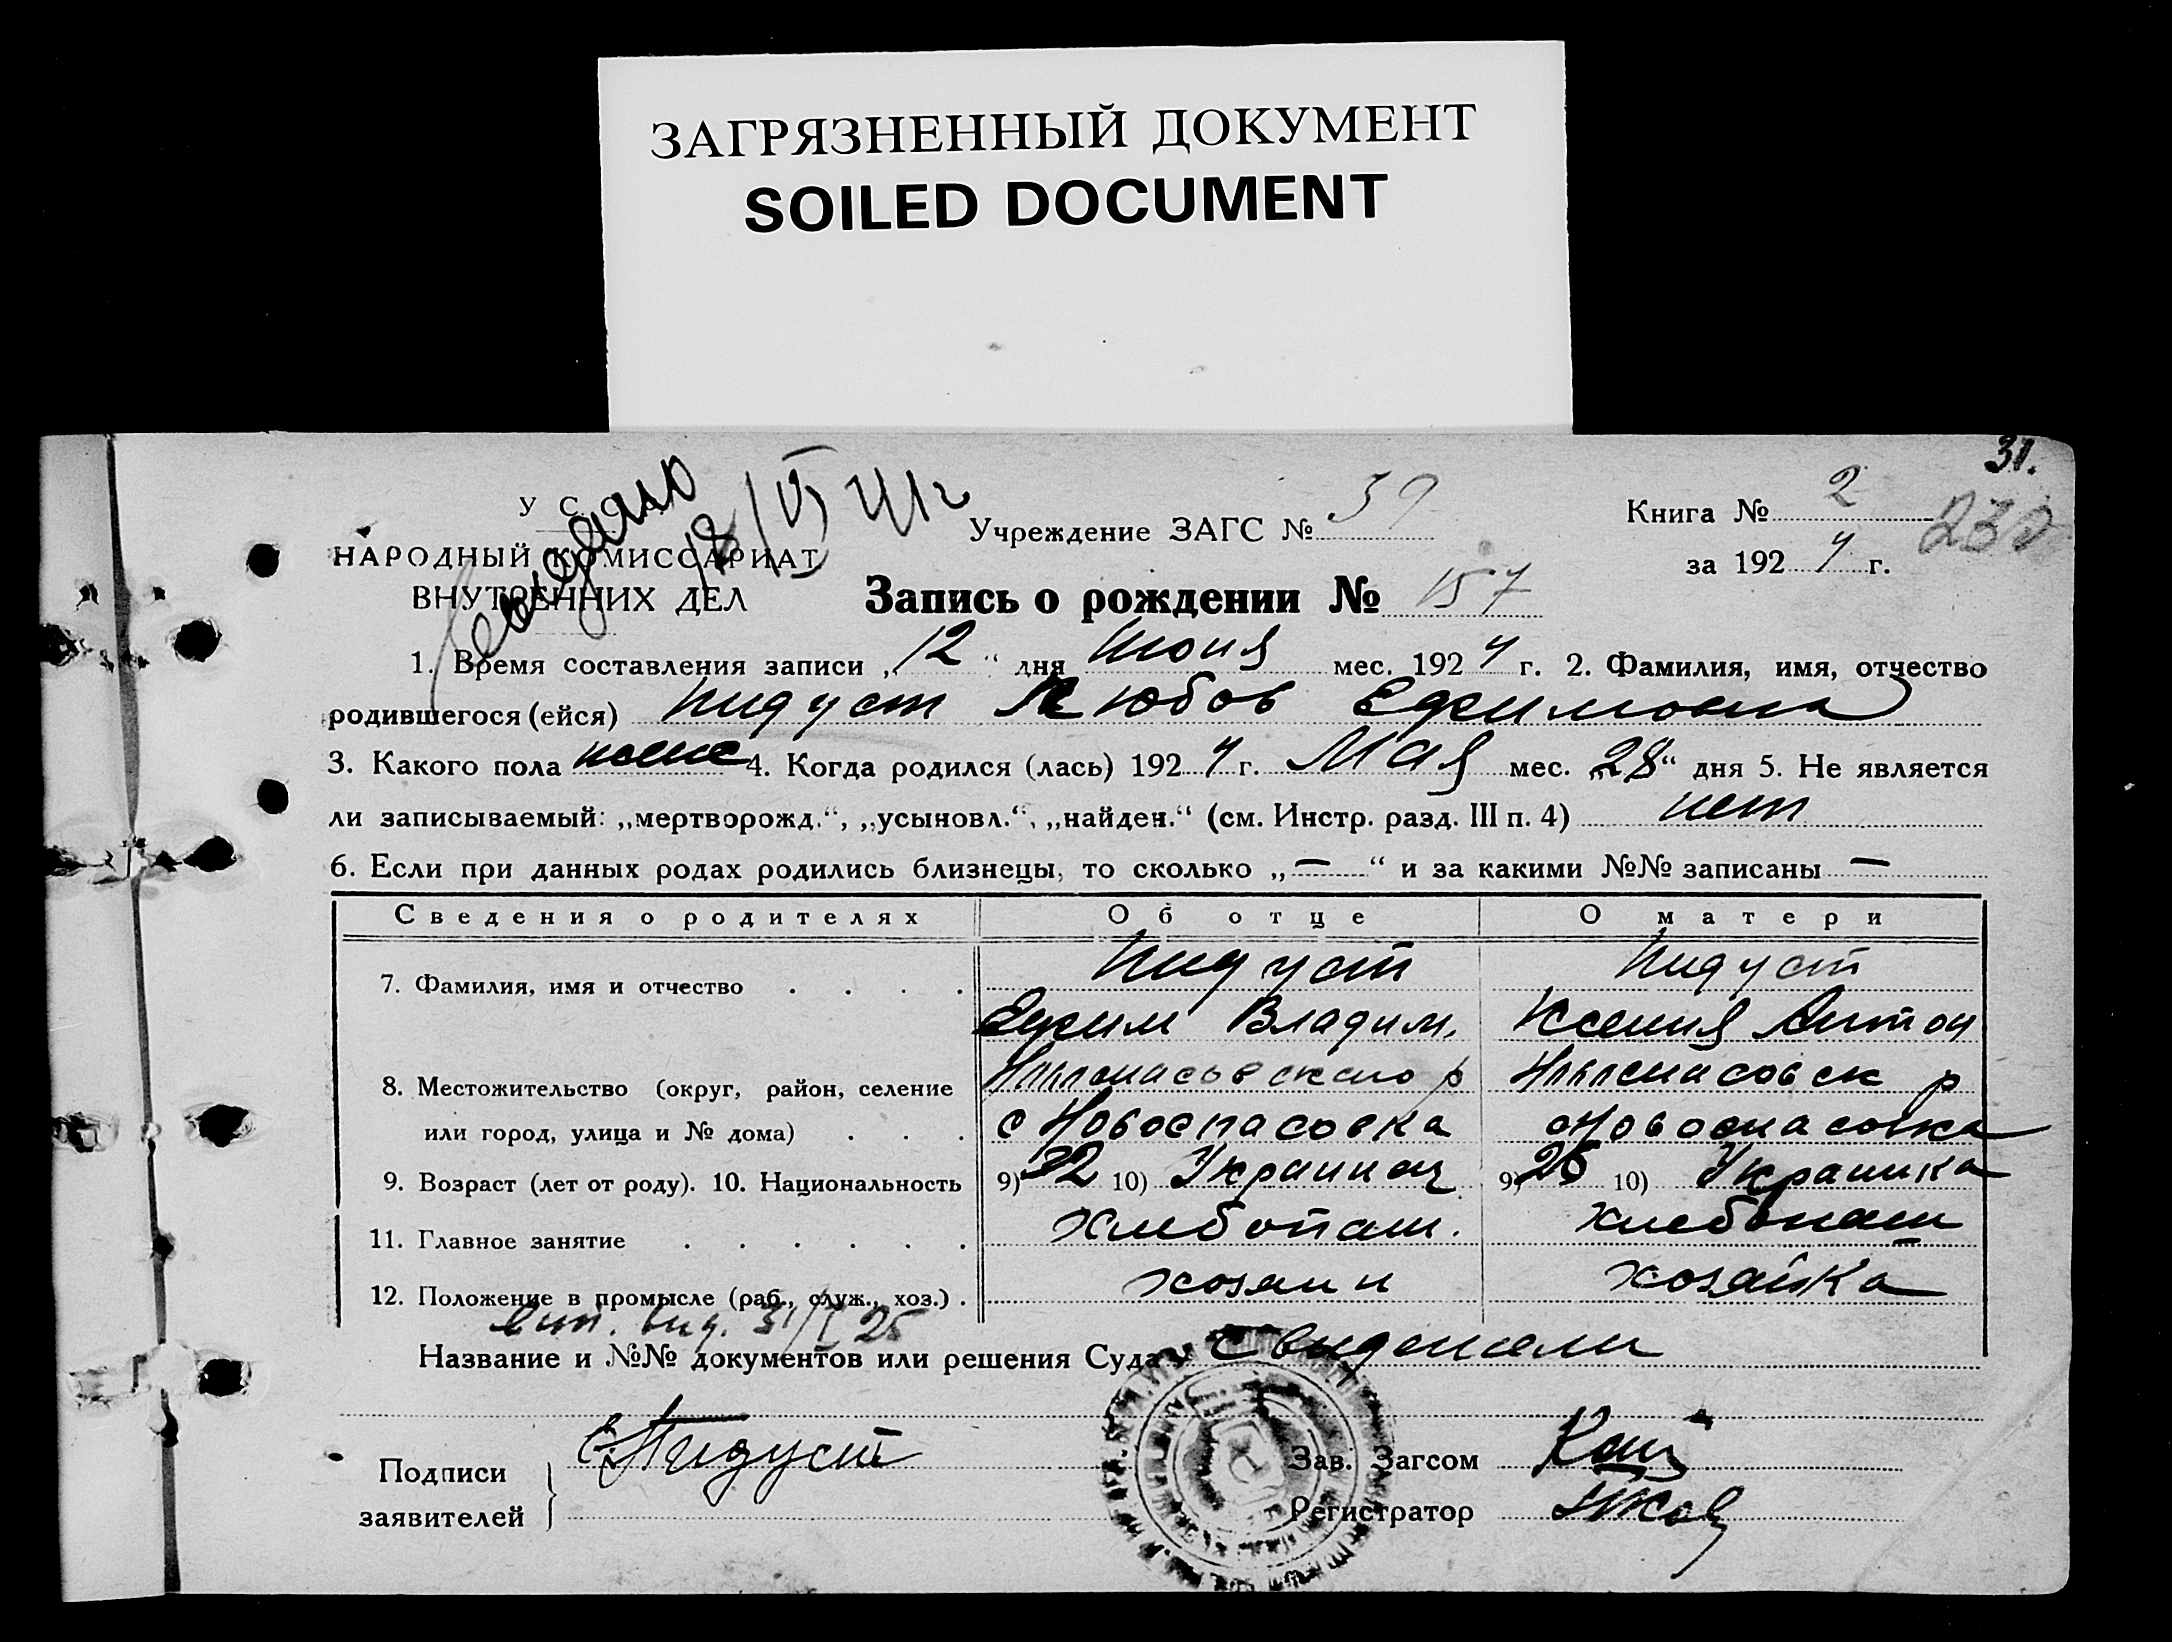 ЗАГРЯЗНЕННЫЙ ДОКУМЕНТ
SOILED DOCUMENT
31.
У С
Учреждение ЗАГС № 39
Книга № 2
230
НАРОДНЫЙ КОМИССАРИАТ
за 1924 г.
ВНУТРЕННИХ ДЕЛ
Запись о рождении № 157
1. Время составления записи „12“ дня Июня мес. 1924 г. 2. Фамилия, имя, отчество
родившегося (ейся) Пидуст Любов Ефимовна
3. Какого пола женс 4. Когда родился (лась) 1924 г. Мая мес. „28“ дня 5. Не является
ли записываемый: „мертворожд.“, „усыновл.“, „найден.“ (см. Инстр. разд. III п. 4) нет
6. Если при данных родах родились близнецы, то сколько „—“ и за какими №№ записаны —
Сведения о родителях Об отце О матери
7. Фамилия, имя и отчество . . . . Пидуст Пидуст
Ефим Владим. Ксения Антон
8. Местожительство (округ, район, селение р р
или город, улица и № дома) . . . с Новоспасовка с Новоспасовка
9. Возраст (лет от роду). 10. Национальность 9) 32 10) Украинец 9) 25 10) Украинка
11. Главное занятие . . . . . . Хлебопаш. хлебопаш
12. Положение в промысле (раб., служ., хоз.) . хозяин хозяйка
Название и №№ документов или решения Суда Свидетели
Подписи заявителей Пидуст
Зав. Загсом
Регистратор